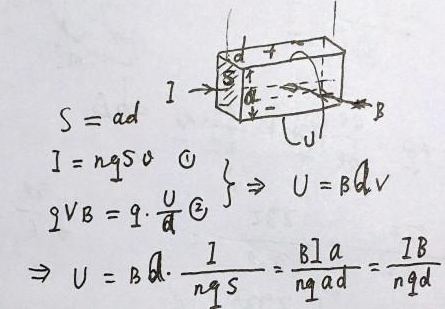 d + −
S a
I
B
U
S = ad
I = nqSv ①
qVB = q · U/d ② } ⇒ U = Bdv
⇒ U = Bd · I/nqS = BIa/nqad = IB/nqd